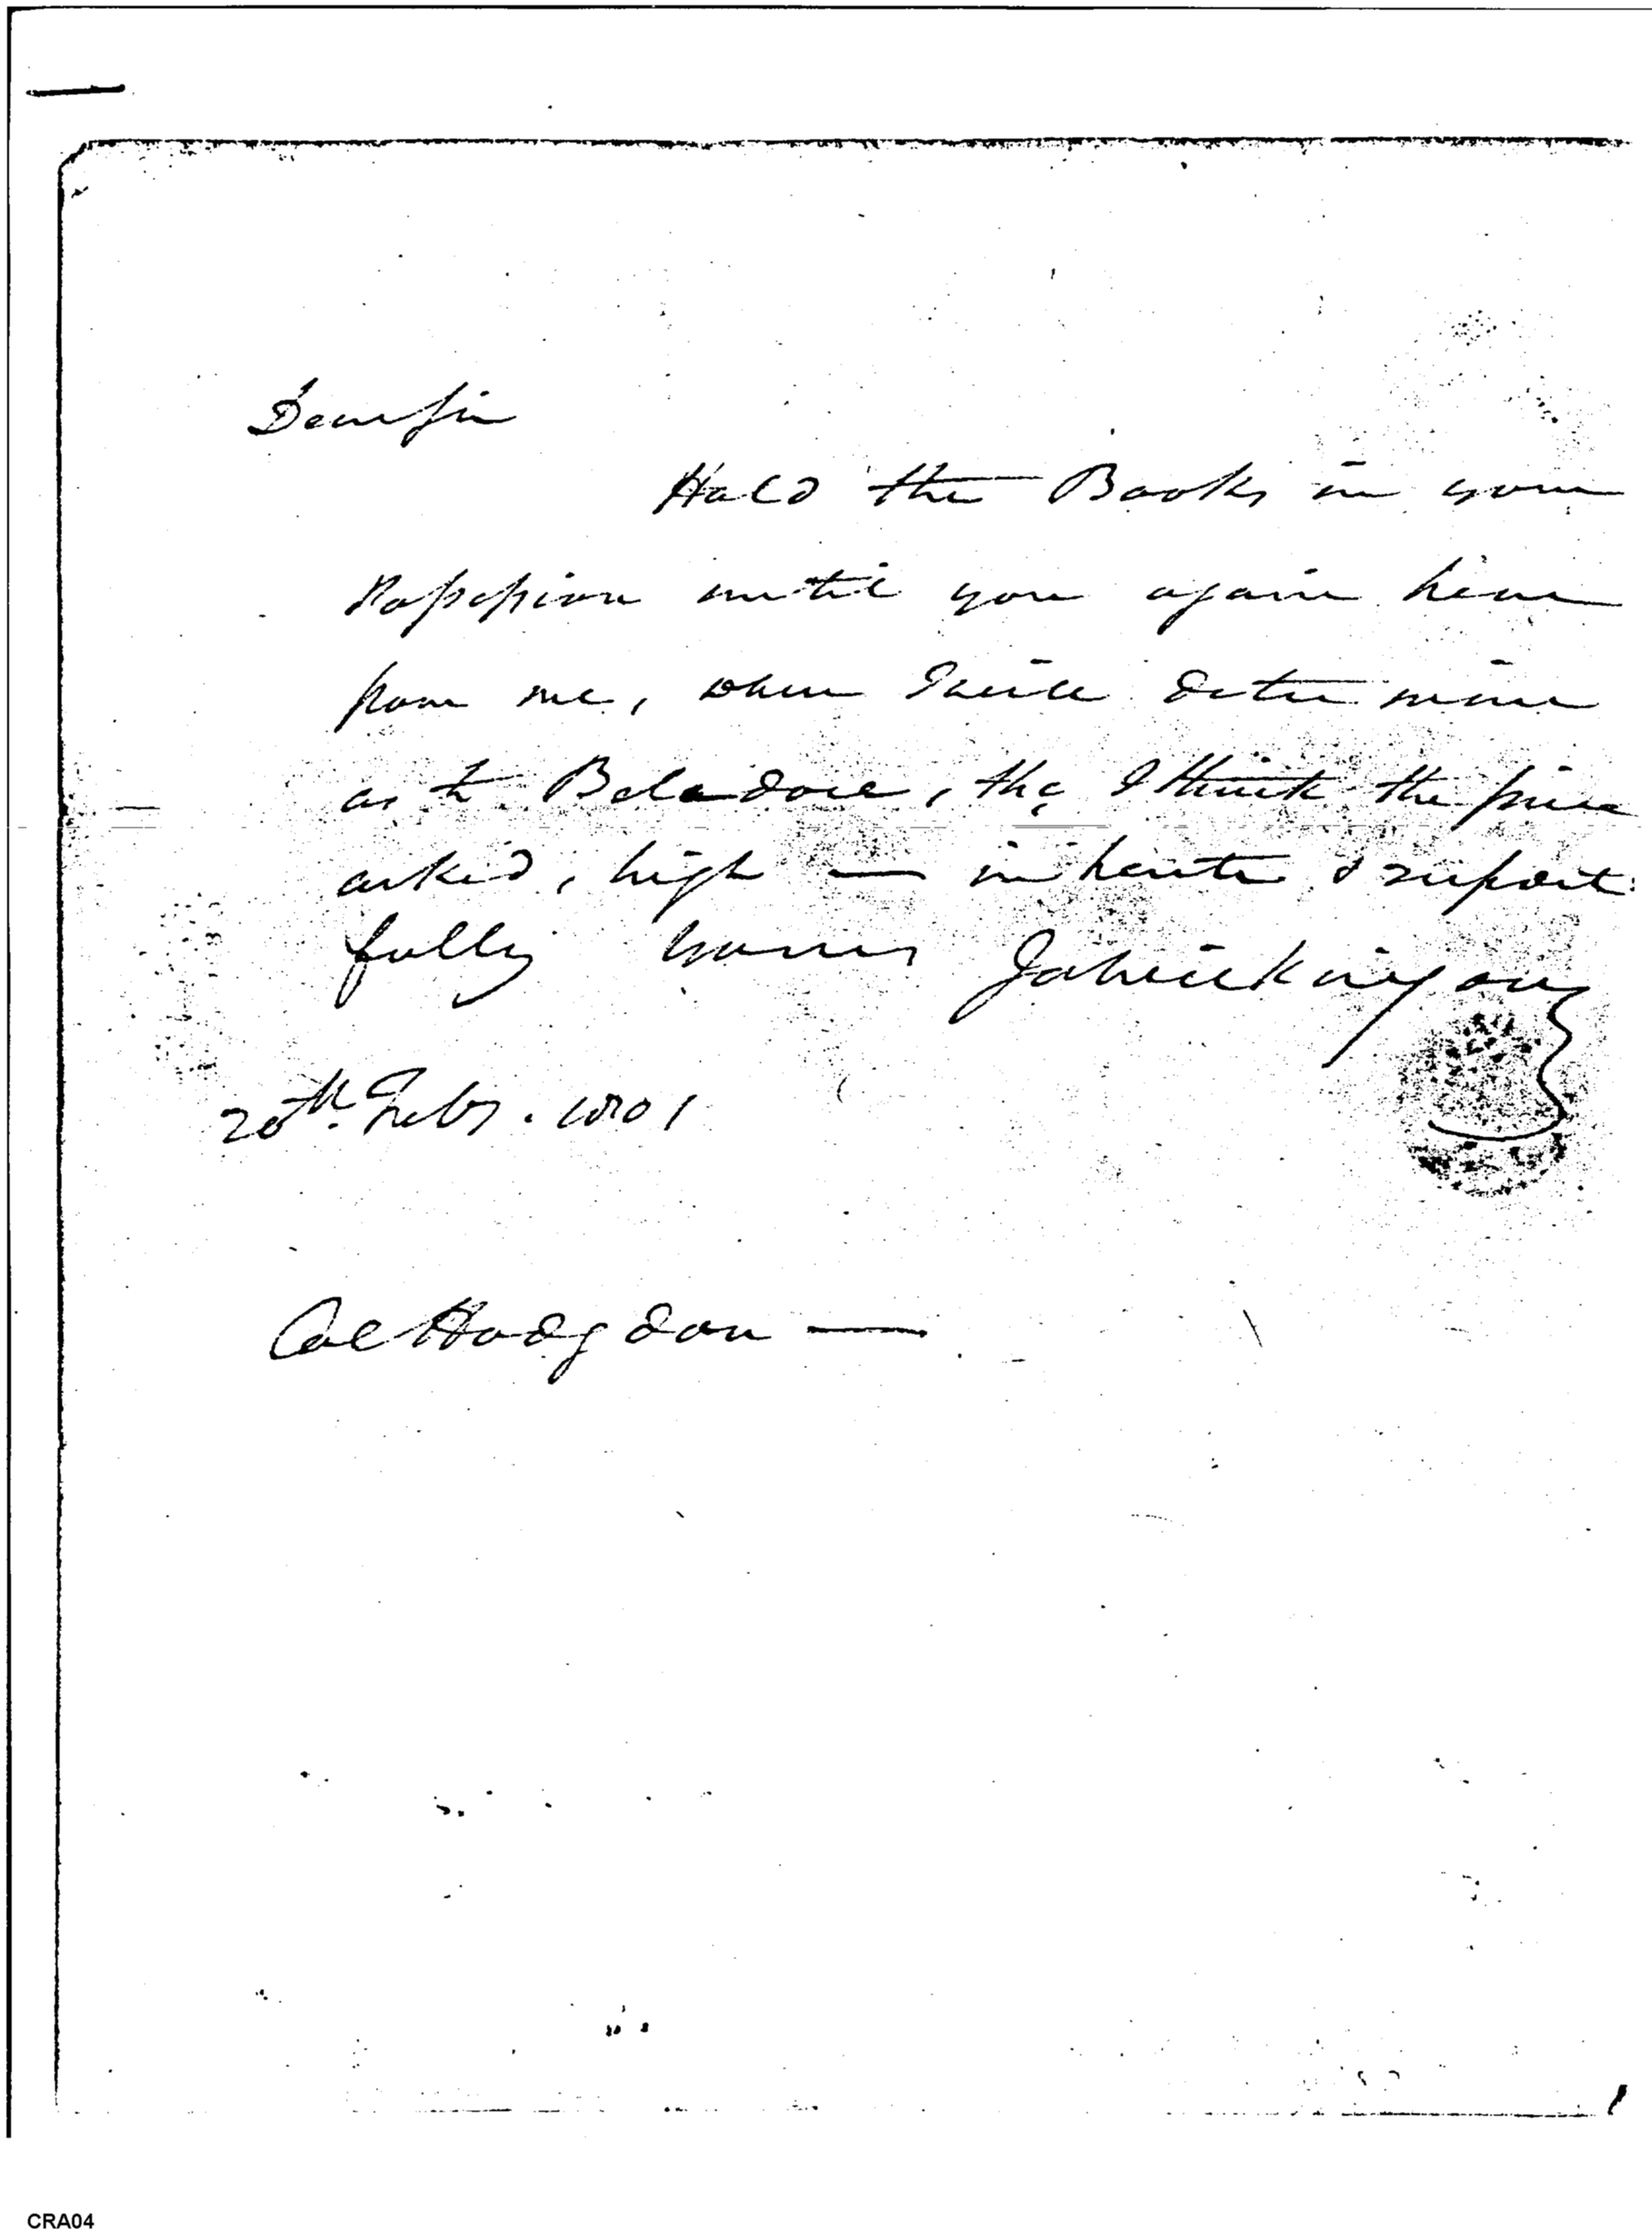 Dear Sir
Hold the Books in your
Possession until you again hear
from me, when I will determine
as to Belidore, tho I think the price
asked, high — in haste & respect
fully yours Ja Wilkinson
20th. Feby. 1801
Col Hodgdon —
CRA04